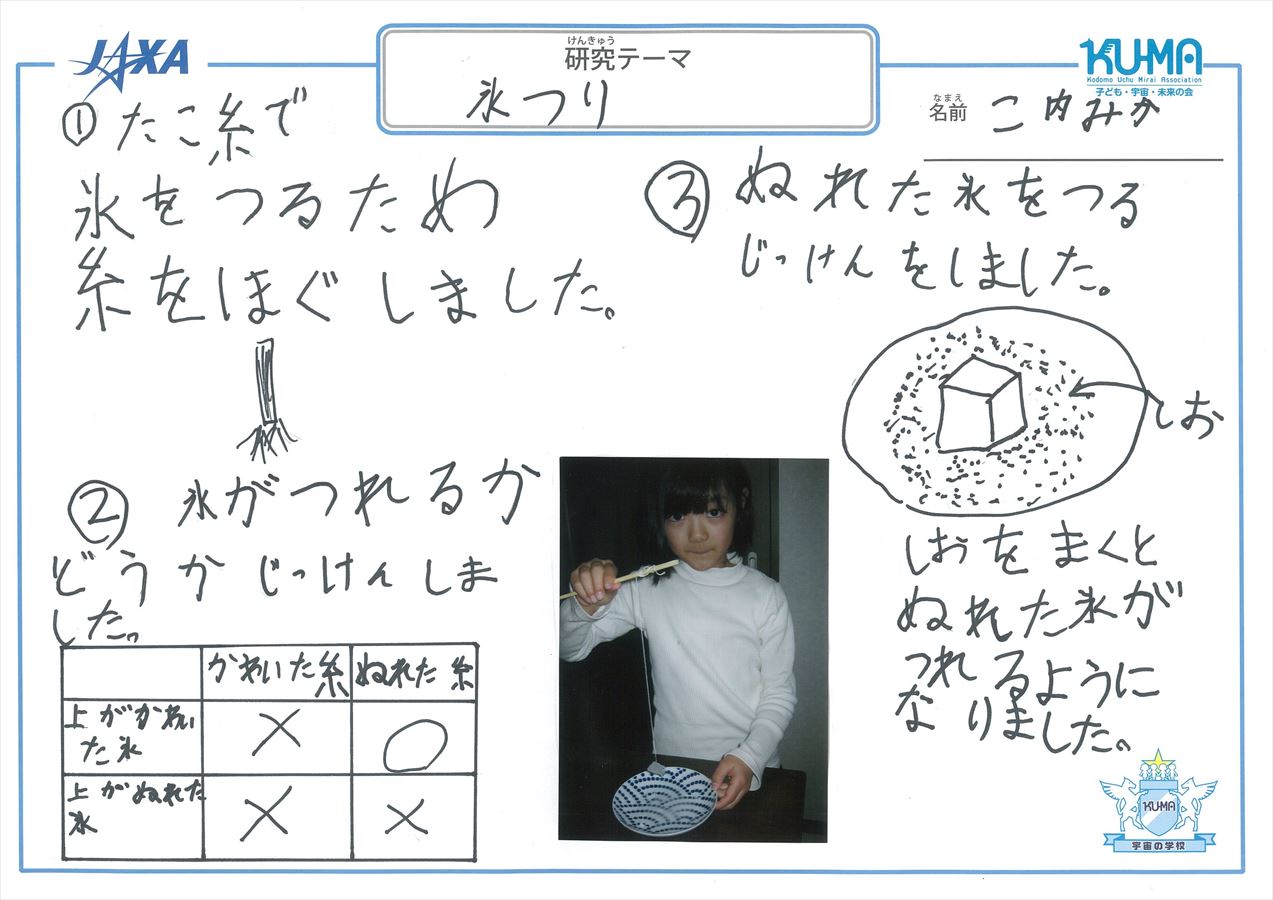 JAXA
けんきゅう
研究テーマ
氷つり
KU-MA
Kodomo Uchu Mirai Association
子ども・宇宙・未来の会
なまえ
名前
二内みか
① たこ糸で
氷をつるため
糸をほぐしました。
② 氷がつれるか
どうかじっけんしま
した。
かわいた糸 ぬれた糸
上がかわい
た氷
× ○
上がぬれた
氷
× ×
③ ぬれた氷をつる
じっけんをしました。
しお
しおをまくと
ぬれた氷が
つれるように
なりました。
KU-MA
宇宙の学校